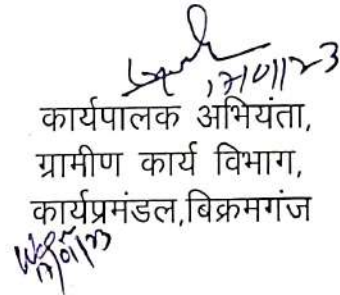 17/01/23
कार्यपालक अभियंता,
ग्रामीण कार्य विभाग,
कार्यप्रमंडल,बिक्रमगंज
17/01/23